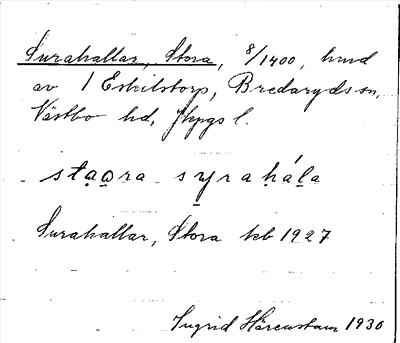 Surahallar, Stora, 8/1400, hmd
av 1 Eskilstorp, Bredaryds sn,
Västbo hd, Jkpgs l.
sta̤o̤ra sy̤raḥála̤
Surahallar, Stora kb 1927
Ingrid Härenstam 1930